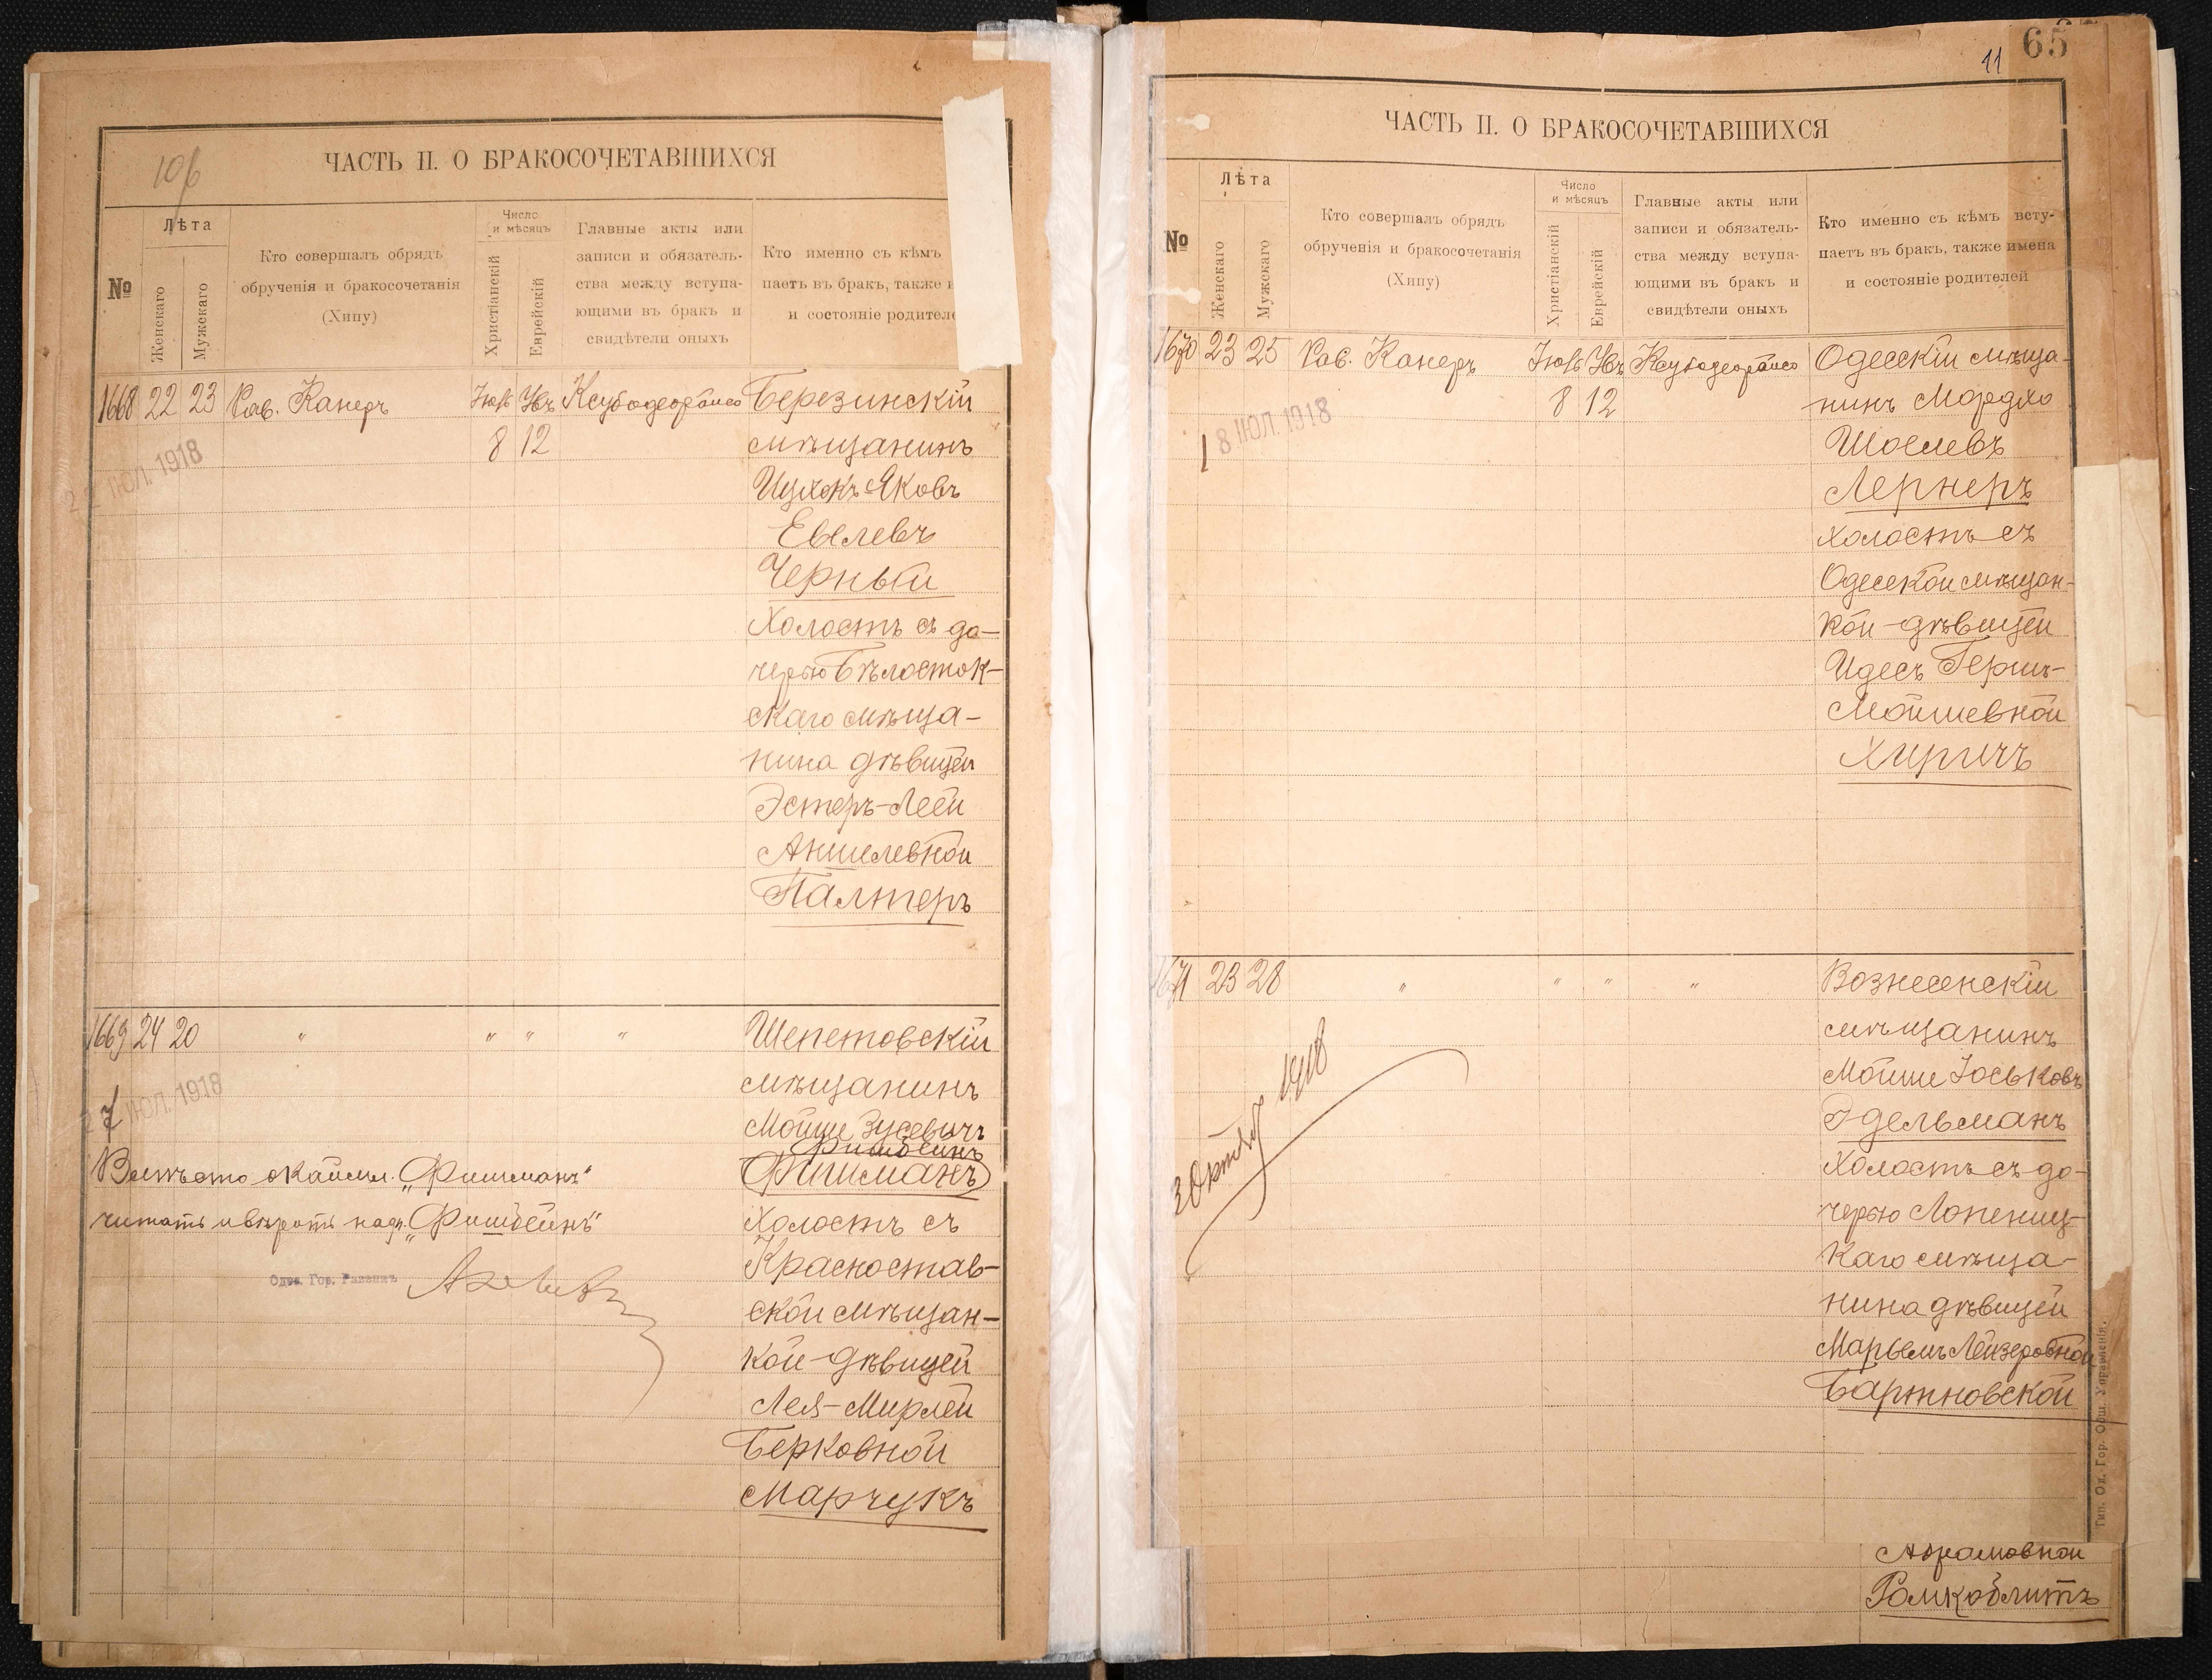 10б
ЧАСТЬ II. О БРАКОСОЧЕТАВШИХСЯ
№
Лѣта
Женскаго
Мужскаго
Кто совершалъ обрядъ
обрученія и бракосочетанія
(Хипу)
Число
и мѣсяцъ
Христіанскій
Еврейскій
Главные акты или
записи и обязатель-
ства между вступа-
ющими въ бракъ и
свидѣтели оныхъ
Кто именно съ кѣмъ
паетъ въ бракъ, также
и состояніе родител
1668 22 23 Рав. Канеръ
8 12
ІЮЛ. 1918
Березинскій
мѣщанинъ
Ицхокъ-Яковъ
Евелевъ
Черныи
Холостъ съ до-
черью Бѣлосток-
скаго мѣща-
нина дѣвицей
Эстеръ-Леей
Аншелевной
Палтеръ
1669 24 20 " " " "
7 ІЮЛ. 1918
Шепетовскій
мѣщанинъ
Мойше Зусевичъ
Фишбейнъ
Фишманъ
Холостъ съ
Красностав-
ской мѣщан-
кой-дѣвицей
Лея-Мирлей
Берковной
Марчукъ
Вмѣсто окаймл. „Фишманъ“
читать и вѣрить надп. „Фишбейнъ“
Одес. Гор. Раввинъ
11
65
ЧАСТЬ II. О БРАКОСОЧЕТАВШИХСЯ
№
Лѣта
Женскаго
Мужскаго
Кто совершалъ обрядъ
обрученія и бракосочетанія
(Хипу)
Число
и мѣсяцъ
Христіанскій
Еврейскій
Главные акты или
записи и обязатель-
ства между вступа-
ющими въ бракъ и
свидѣтели оныхъ
Кто именно съ кѣмъ всту-
паетъ въ бракъ, также имена
и состояніе родителей
1670 23 25 Рав. Канеръ
8 12
18 ІЮЛ. 1918
Одесскій мѣща-
нинъ Мордхо
Шоелевъ
Лернеръ
холостъ съ
Одесской мѣщан-
кой-дѣвицей
Идесъ Гершъ-
Мойшевной
Хиричъ
1671 23 28 " " " "
3 Октября 1918
Вознесенскій
мѣщанинъ
Мойше Іоськовъ
Эдельманъ
Холостъ съ до-
черью Лопениц-
каго мѣща-
нина дѣвицей
Марьемъ Лейзеровной
Бартновской
Тип. Од. Гор. Общ. Управленія.
Абрамовной
Ромкоблитъ